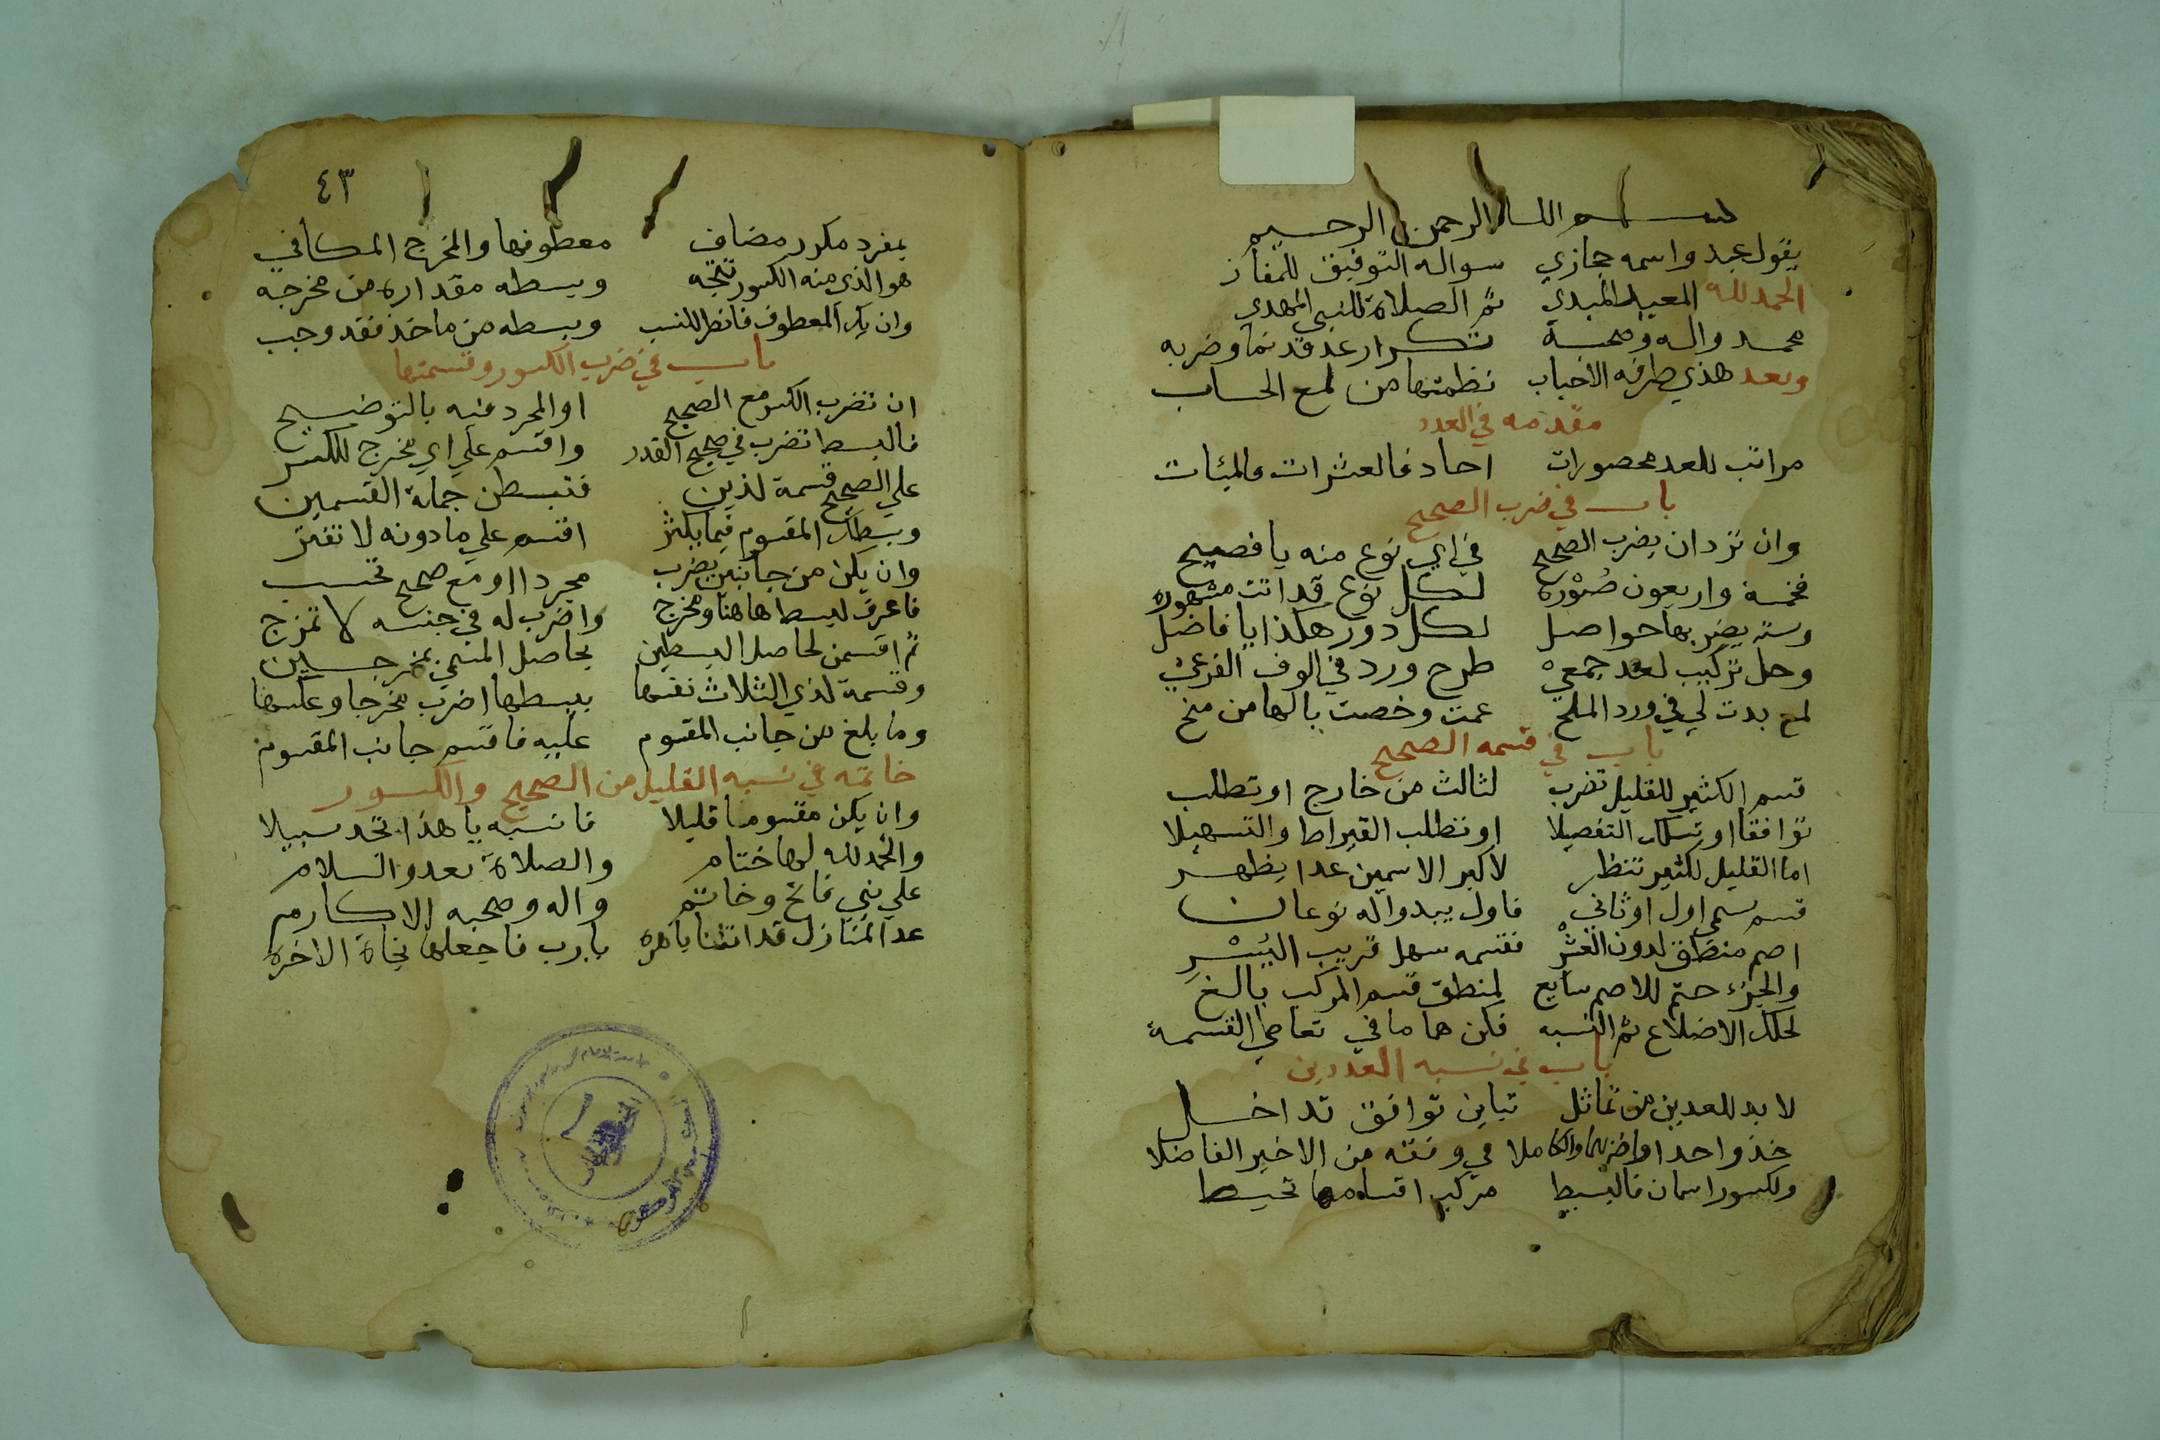 بسم الله الرحمن الرحيم
يقول عبد واسمه حجازي سواله التوفيق للمفاز
الحمد لله المعيد المبدي ثم الصلاة للنبي المهدي
محمد واله وصحبه تكرار عد قد نما وضربه
وبعد هذي طرفة الاحباب نظمتها من لمع الحساب
مقدمه في العدد
مراتب للعد محصورات احاد فالعشرات والمئات
باب في ضرب الصحيح
وان ترد ان يضرب الصحيح في اي نوع منه يا فصيح
فخمسة واربعون صوره لكل نوع قد اتت مشهوره
وسته يضربها حواصل لكل دور هكذا يا فاضل
وحل تركيب لعد جمعي طرح ورد في الوف الفرعي
لمع بدت لي في ورد الملح عمت وخصت يا لها من منح
باب في قسمه الصحيح
قسم الكثير للقليل تضرب لثالث من خارج او تطلب
توافقا او تسلك التفصيلا او تطلب القيراط والتسهيلا
اما القليل لكثير تنظر لاكبر الاسمين عدا يظهر
قسم سمي اول او ثاني فاول يبدو اله نوعان
اصم منطق لدون العشر فقسمه سهل قريب اليسر
والجزء حتم للاصم سايع لمنطق قسم المركب بالغ
لحلك الاضلاع ثم النسبه فكن هما ما في تعاطي القسمة
باب في نسبه العددين
لا بد للعدين من تماثل تباين توافق تداخل
خذ واحدا واضربهما والكاملا في وفقه من الاخير الفاضلا
ولكسور اسمان فالبسيط مركب اقسامها تحيط
٤٣
بمفرد مكرر مضاف معطوفها والمخرج المكافي
هو الذي منه الكسور تتجه وبسطه مقداره من مخرجه
وان يك المعطوف فانظر للنسب وبسطه من ماخذ فقد وجب
باب في ضرب الكسور وقسمتها
ان تضرب الكسر مع الصحيح او المجرد فيه بالتوضيح
فالبسط تضرب في صحيح القدر واقسم على اي مخرج للكسر
على الصحيح قسمة لذين فتبسطن جملة القسمين
وبسطك المقسوم فيما يكثر اقسم على ما دونه لا تفتر
وان يكن من جانبين يضرب مجردا او مع صحيح تحسب
فاعرف لبسط هاهنا ومخرج واضرب له في جنسه لا تمزج
ثم اقسمن لحاصل البسطين بحاصل المنمي بمخرجين
وقسمة لذي الثلاث نفسها ببسطها اضرب مخرجا وعكسها
وما بلغ من جانب المقسوم عليه فاقسم جانب المقسوم
خاتمه في نسبه القليل من الصحيح والكسور
وان يكن مقسوما قليلا فانسبه يا هذا تجد سبيلا
والحمد لله لها ختام والصلاة بعد والسلام
على نبي فاتح وخاتم واله وصحبه الاكارم
عد المنازل قد اتتنا باهره يا رب فاجعلها نجاة الاخره